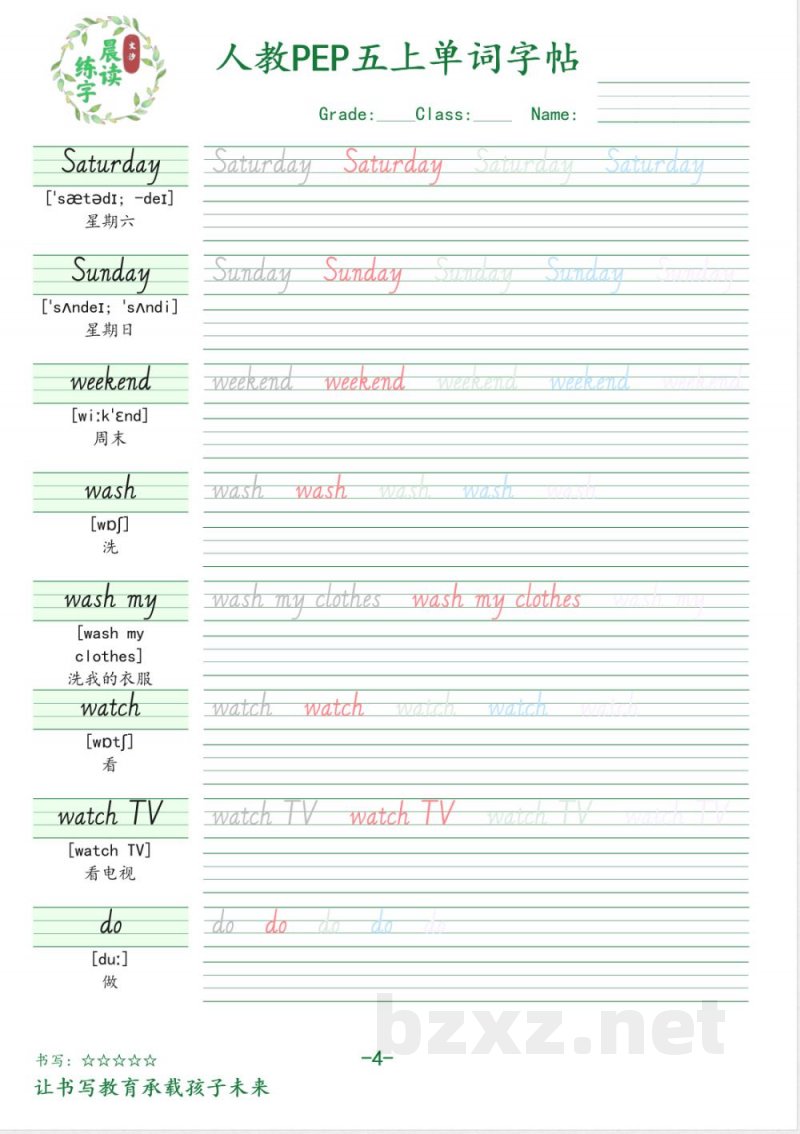 晨读
练字
文汐
人教PEP五上单词字帖
Grade:____Class:____ Name:
Saturday Saturday Saturday Saturday Saturday
['sætədɪ; -deɪ]
星期六
Sunday Sunday Sunday Sunday Sunday Sunday
['sʌndeɪ; 'sʌndi]
星期日
weekend weekend weekend weekend weekend weekend
[wiːk'ɛnd]
周末
wash wash wash wash wash wash
[wɒʃ]
洗
wash my wash my clothes wash my clothes wash my
[wash my
clothes]
洗我的衣服
watch watch watch watch watch watch
[wɒtʃ]
看
watch TV watch TV watch TV watch TV watch TV
[watch TV]
看电视
do do do do do do
[duː]
做
bzxz.net
书写: ☆☆☆☆☆
-4-
让书写教育承载孩子未来